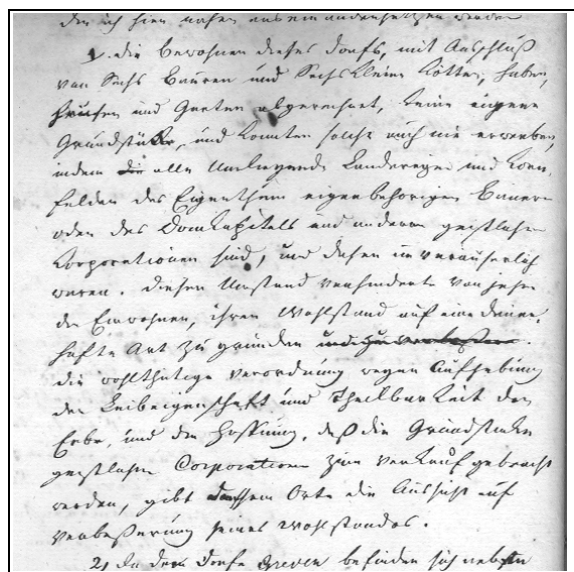 die ich hier näher auseinandersetzen werde
1. die bewohner dieses dorfs, mit Ausschluß
von Sechs Bauren und Sechs Kleine Kötter, haben,
Häuser und Garten abgerechnet, keine eigene
Grundstücke, und konnten solche auch nie erwerben,
indem die alle Umliegende Ländereyen und Korn-
felder das Eigenthum eigenbehöriger Bauern
oder des Domkapitels und anderer geistlicher
Korporationen sind, und daher unveräußerlich
waren. Dieser Umstand verhinderte von jeher
die Einwohner, ihren Wohlstand auf eine dauer-
hafte Art zu gründen und zu verbeßern.
die wohlthätige Verordnung wegen Aufhebung
der Leibeigenschaft und Theilbarkeit der
Erbe, und die Hoffnung, daß die Grundstücke
geistlicher Corporationen zum Verkauf gebracht
werden, gibt diesem Orte die Aussicht auf
Verbeßerung seines Wohlstandes.
2) In dem Dorfe Greven befinden sich nebst